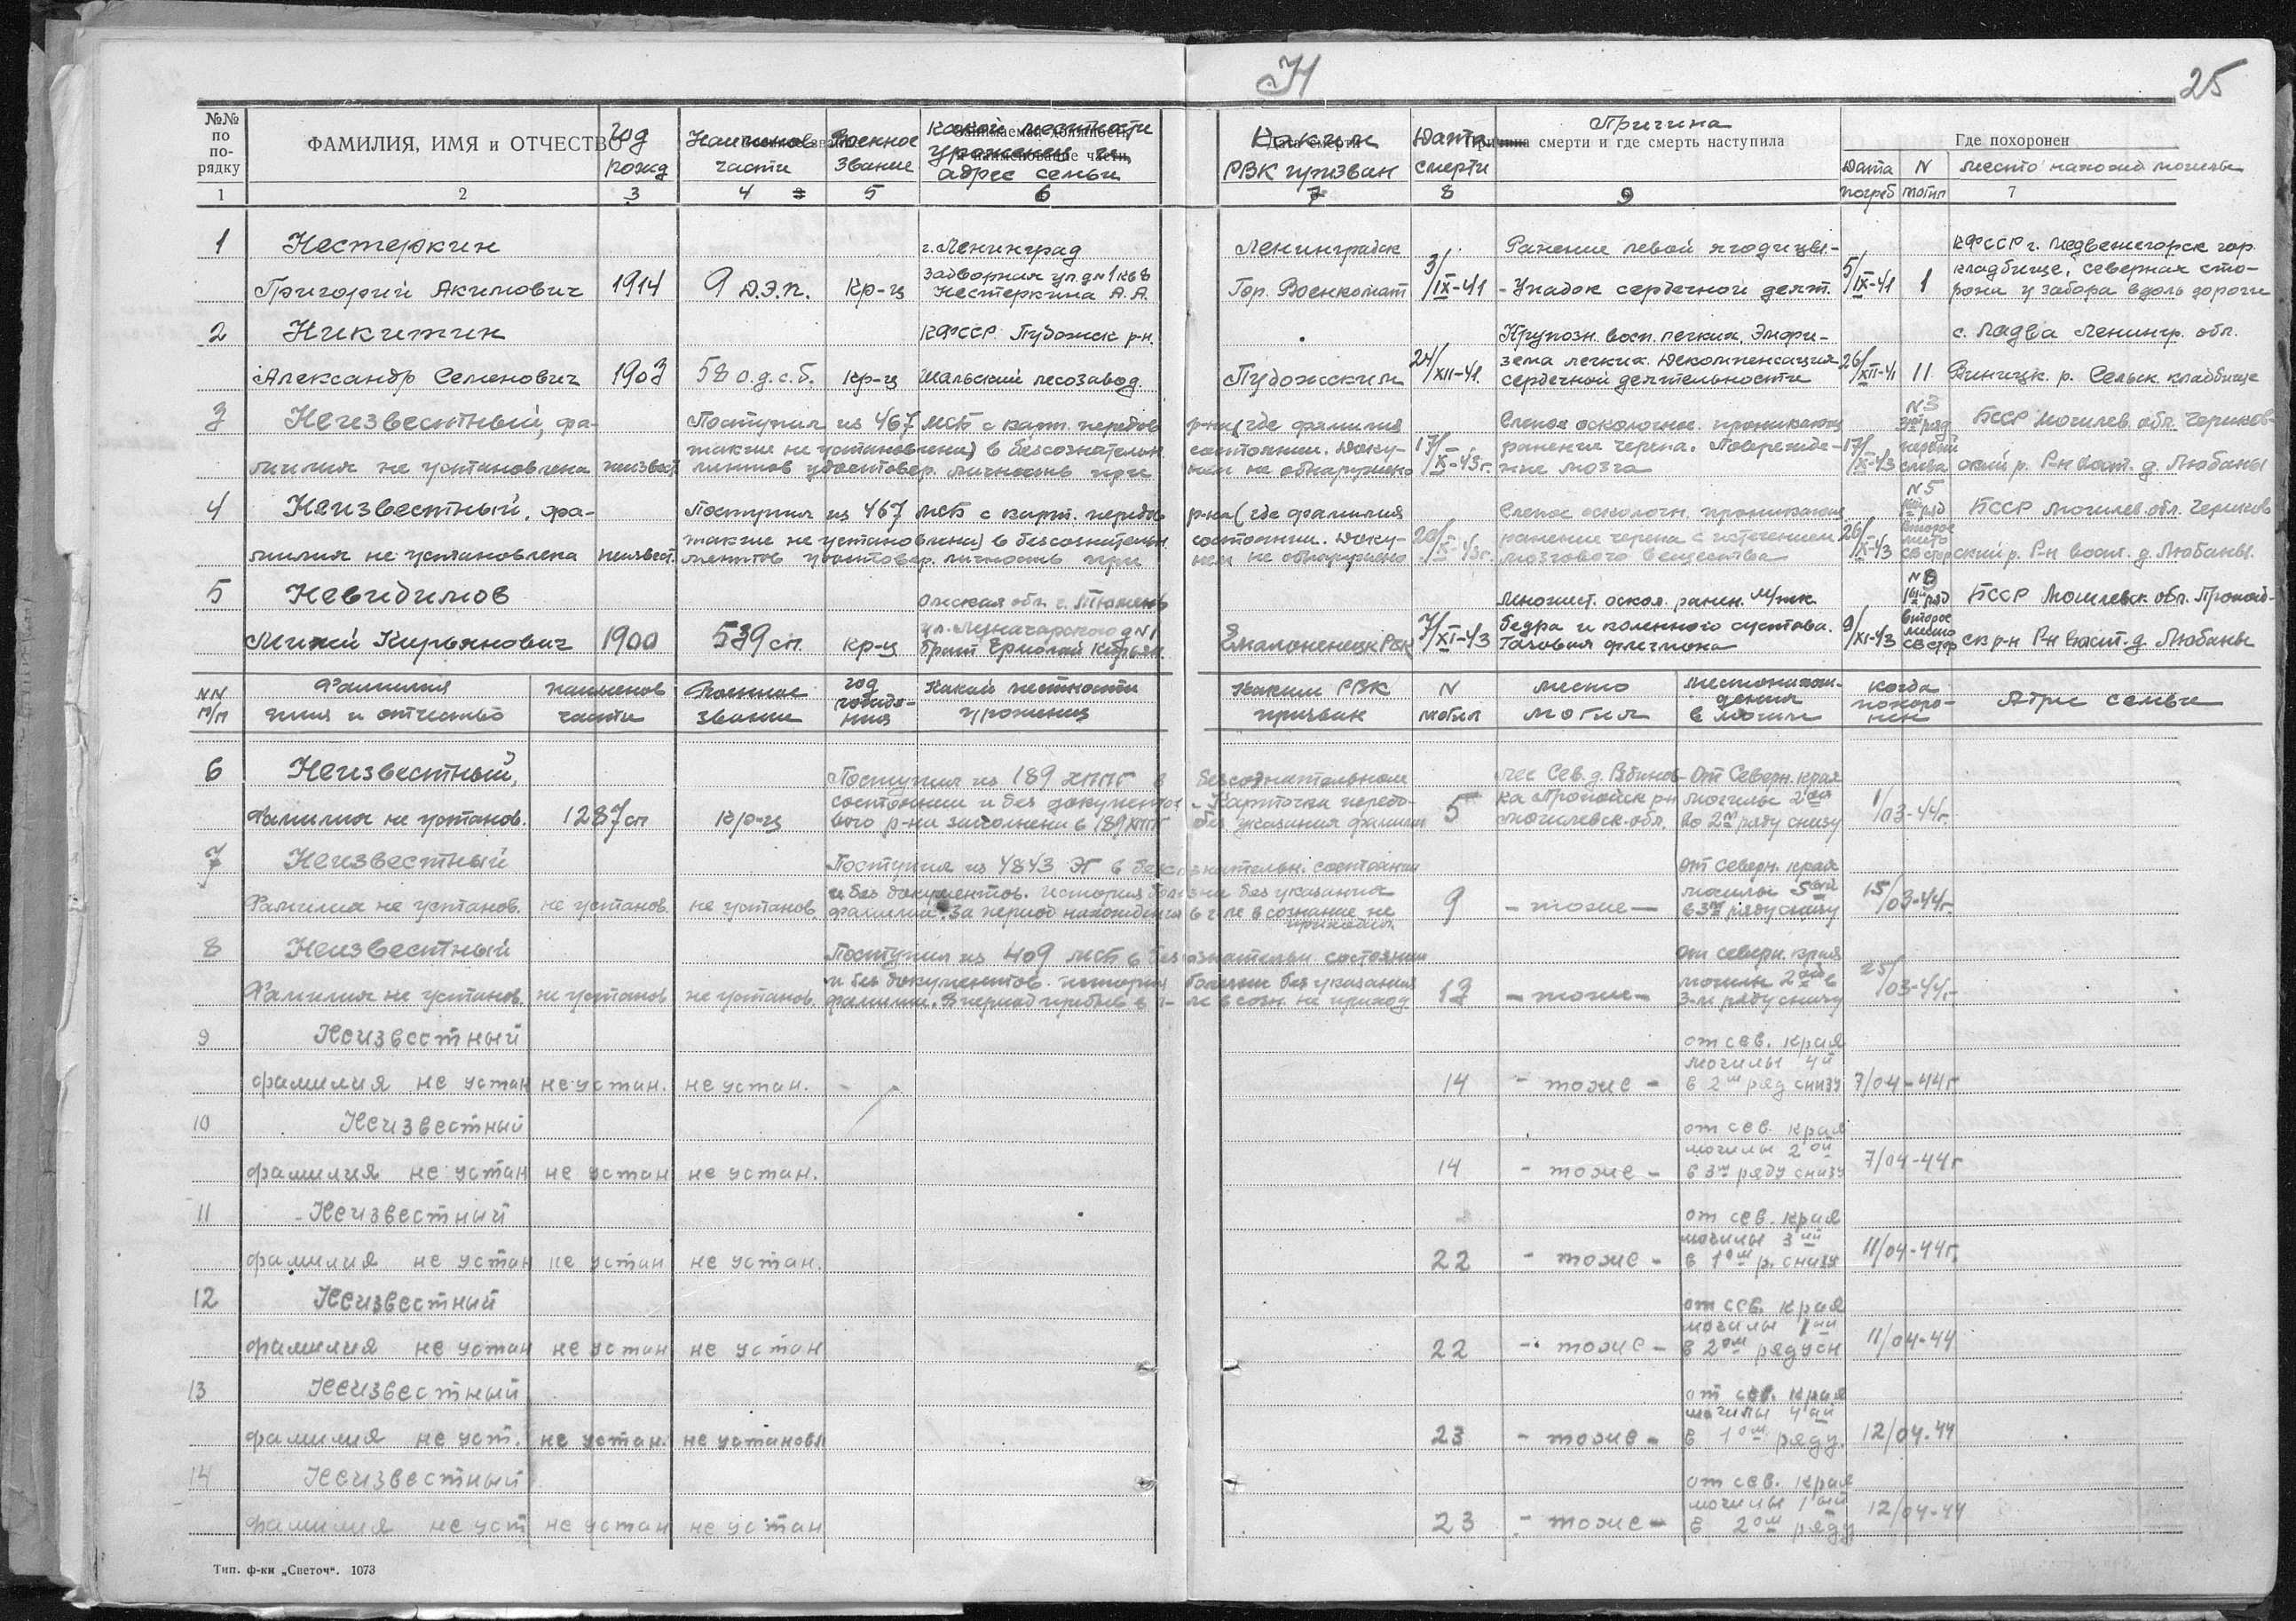 Н
25
№№ по по-рядку
ФАМИЛИЯ, ИМЯ и ОТЧЕСТВО
Год рожд
Наименов части
Военное звание
Какой местности уроженец и адрес семьи
Каким РВК призван
Дата смерти
Причина смерти и где смерть наступила
Где похоронен
Дата погреб
N могил
место нахожд могилы
1 2 3 4 5 6 7 8 9 7
1 Нестеркин
г. Ленинград
Ленинградск
Ранение левой ягодицы-
КФССР г. Медвежегорск гор.
Григорий Акимович 1914 9 Д.Э.П. Кр-ц
Задворная ул д N1 кв 8
Нестеркина А. А.
Гор. Военкомат 3/IX-41
- Упадок сердечной деят.
5/IX-41 1
кладбище, северная сто-
рона у забора вдоль дороги
2 Никитин
КФССР Пудожск р-н.
Крупозн. восп. легких, Эмфи-
с. Ладва Ленингр. обл.
Александр Семенович 1903 58 о.д.с.б. кр-ц
Шальский лесозавод
Пудожским 24/XII-41.
зема легких. Декомпенсация
сердечной деятельности
26/XII-41 11
Виницк. р. Сельск. кладбище
3 Неизвестный, фа-
Поступил из 467 МСБ с карт. передов р-на (где фамилия
Слепое осколочное проникающ
N 3
БССР Могилев. обл. Чериков-
милия не установлена неизвест.
также не установлена) в бессознательн. состоянии. Доку-
ментов удостовер. личность при нем не обнаружено
17/X-43г.
ранение черепа. Поврежде-
ние мозга
17/X-43
ряд первый слева
ский р. Р-н вост. д. Любаны
4 Неизвестный, фа-
Поступил из 467 МСБ с карт. передов р-на (где фамилия
Слепое осколочн. проникающ
N 5
БССР Могилев. обл. Чериков
милия не установлена неизвест.
также не установлена) в бессознательн. состоянии. Доку-
ментов удостовер. личность при нем не обнаружено
26/X-43г.
ранение черепа с истечением
мозгового вещества
26/X-43
ряд второе место СВ стор
ский р. Р-н вост. д. Любаны.
5 Невидимов
Омская обл. г. Тюмень
Множест. оскол. ранен. м/тк.
ряд
БССР Могилевск. обл. Пропой-
Михей Кирьянович 1900 539 сп кр-ц
ул. Луначарского д N1
брат Ермолай Кирьян.
РВК
7/XI-43
бедра и коленного сустава.
Газовая флегмона
9/XI-43
второе место СВ стор
ск р-н Р-н вост. д Любаны
NN п/п
Фамилия имя и отчество
наименов части
Военное звание
год рожде-ния
Какой местности уроженец
Каким РВК призван
N могил
место могил
местонахож-дения в могиле
когда похоро-нен
Адрес семьи
6 Неизвестный,
Поступил из 189 ХППГ в бессознательном
лес Сев. д. Рябинов-
От Северн. края
Фамилия не установ. 1287 сп кр-ц
состоянии и без документов - Карточка передо-
вого р-на заполнена в 189 ХППГ без указания фамилии
5
ка Пропойск р-н
Могилевск. обл.
могилы 2ой
во 2м ряду снизу
1/03-44г.
7 Неизвестный
Поступил из 4843 ЭГ в бессознательн. состоянии
От Северн. края
Фамилия не установ. не установ. не установ.
и без документов. История болезни без указания
фамилии. За период нахождения в г-ле в сознание не приходил
9 - тоже -
могилы 5ый
в 3м ряду снизу
15/03-44г.
8 Неизвестный
Поступил из 409 МСБ в бессознательн. состоянии
От северн. края
Фамилия не установ. не установ не установ.
и без документов. история болезни без указания
фамилии. В период пребыв в г-ле в созн. не приход
13 - тоже -
могилы 2ой в
3-м ряду снизу
25/03-44г.
9 Неизвестный
от сев. края
могилы 4й
фамилия не устан не устан. не устан.
14 - тоже - в 2м ряд снизу 7/04-44г
10 Неизвестный
от сев. края
могилы 2ой
фамилия не устан не устан не устан.
14 - тоже - в 3м ряду снизу 7/04-44г
11 Неизвестный
от сев. края
могилы 3ий
фамилия не устан не устан не устан.
22 - тоже - в 1ом р. снизу 11/04-44г.
12 Неизвестный
от сев. края
могилы 1ый
фамилия не устан не устан не устан
22 - тоже - в 2ом ряду сн 11/04-44
13 Неизвестный
от сев. края
могилы 4ый
фамилия не уст. не устан. не установл
23 - тоже - в 1ом ряду. 12/04-44
14 Неизвестный
от сев. края
могилы 1ый
фамилия не уст не устан не устан
23 - тоже - в 2ом ряду 12/04-44
Тип. ф-ки „Светоч“. 1073